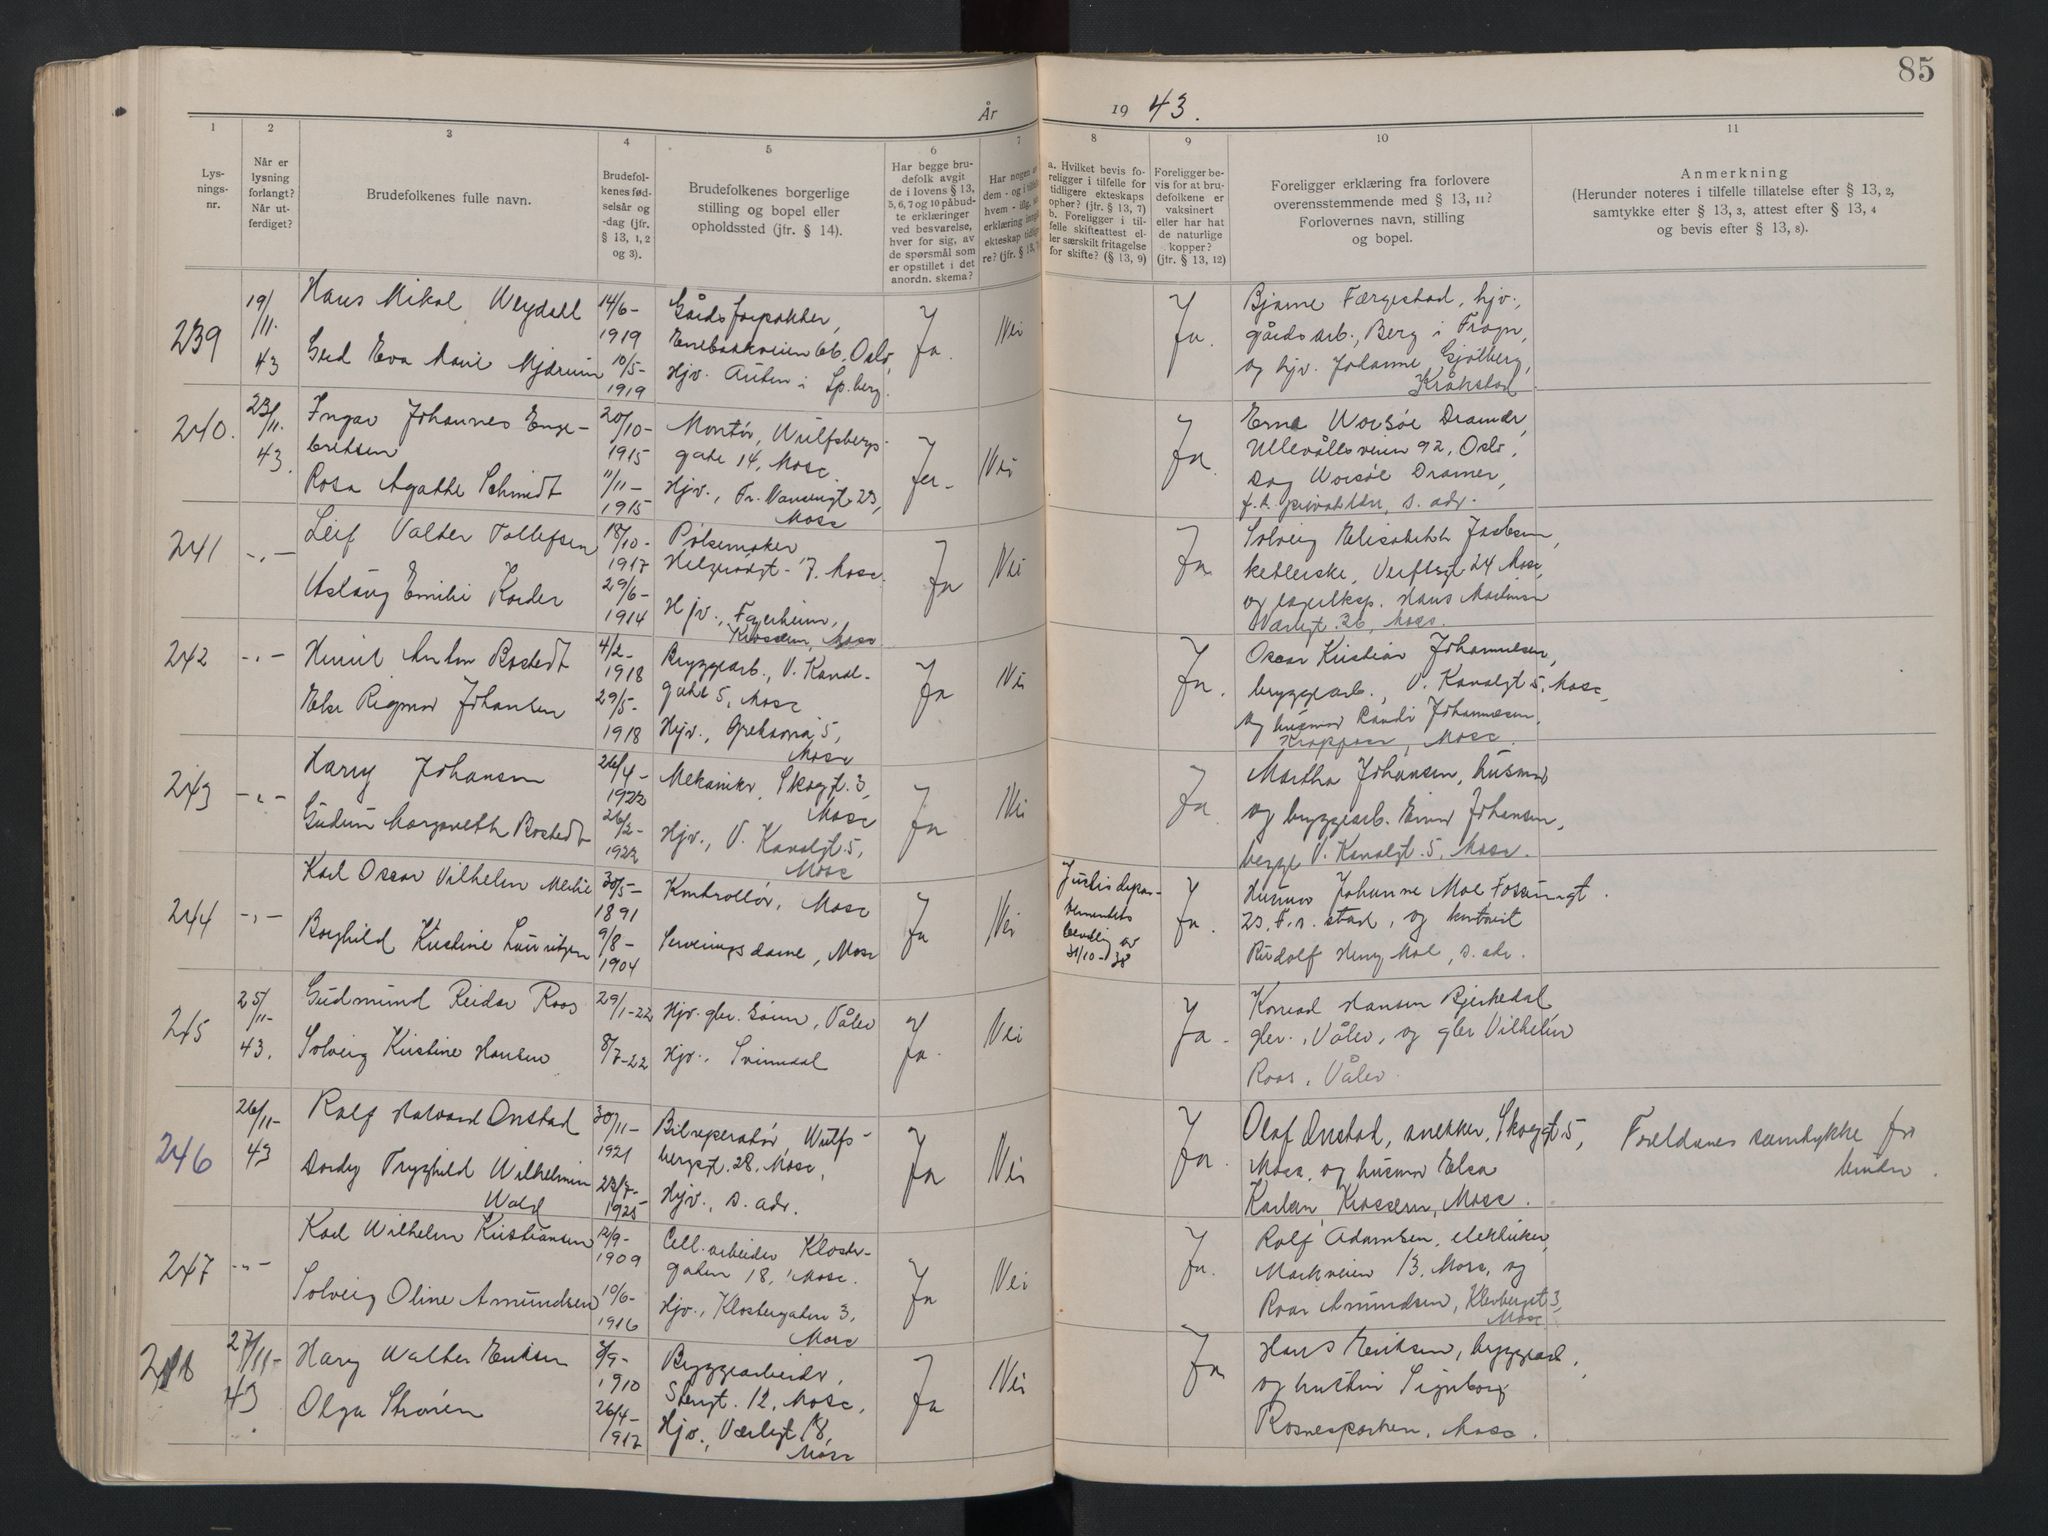 85
År 19 43.
1 2 3 4 5 6 7 8 9 10 11
Lys-
nings-
nr.
Når er
lysning
forlangt?
Når ut-
ferdiget?
Brudefolkenes fulle navn.
Brudefol-
kenes fød-
selsår og
-dag (jfr.
§ 13, 1, 2
og 3).
Brudefolkenes borgerlige
stilling og bopel eller
opholdssted (jfr. § 14).
Har begge bru-
defolk avgit
de i lovens § 13,
5, 6, 7 og 10 påbud-
te erklæringer
ved besvarelse,
hver for sig, av
de spørsmål som
er opstillet i det
anordn. skema?
Har nogen av
dem - og i tilfelle
hvem - iflg.
erklæring inngått
ekteskap tidlige-
re? (jfr. § 13,
a. Hvilket bevis fo-
religger i tilfelle for
tidligere ekteskaps
ophør? (jfr. § 13, 7)
b. Foreligger i til-
felle skifteattest el-
ler særskilt fritagelse
for skifte? (§ 13, 9)
Foreligger be-
vis for at bru-
defolkene er
vaksinert
eller har hat
de naturlige
kopper?
(jfr. § 13, 12)
Foreligger erklæring fra forlovere
overensstemmende med § 13, 11?
Forlovernes navn, stilling
og bopel.
Anmerkning
(Herunder noteres i tilfelle tillatelse efter § 13, 2,
samtykke efter § 13, 3, attest efter § 13, 4
og bevis efter § 13, 8).
239
19/
11.
43
Hans Mikal
Gud Eva Marie Mjærum
14/6-
1919
10/5-
1919
Gårdsforpakter,
Enebakkveien 66, Oslo,
Hjv. Auten i Sp.berg.
Ja.
Nei
Ja.
Bjarne Færgestad, hjv.,
gårdsarb., Berg i Frogn,
og hjv. Johanne Gjølberg,
Kråkstad
240.
23/11.
43.
Ingar Johannes Enge-
bretsen
Rosa Agathe Schmidt
20/10-
1915
11/11-
1915
Montør, Wulfsbergs-
gate 14, Moss.
Hjv., Fr. Nansensgt. 23,
Moss
Ja.
Nei
Ja.
Erna Worsøe Dramer,
Ullevållsveien 92, Oslo,
Dag Worsøe Dramer,
s. adr.
241
-,-
Leif Valter Tollefsen
Aslaug Emilie Korder
18/10-
1917
29/6-
1914
Pølsemaker
Helgerødgt. 7. Moss.
Hjv., Fagerheim,
Krossern, Moss
Ja
Nei
Ja
Solveig Elisabeth Jacobsen,
Verftsgt 24 Moss,
og lagereksp. Hans Martinsen
Værlegt. 36, Moss.
242
-,-
Anton Bostedt
Else Rigmor Johansen
4/2-
1918
29/5-
1918
Bryggearb., V. Kanal-
gate 5, Moss
Hjv., 5,
Moss
Ja
Nei
Ja.
Oscar Kristian Johannesen,
bryggearb., V. Kanalgt 5, Moss,
og husmor Randi Johannesen.
Krapfoss, Moss.
243
-,-
Harry Johansen
Gudrun Margareth Bostedt
26/4-
1922
26/2-
1922
Mekaniker, Skogt. 3,
Moss
Hjv., V. Kanalgt. 5,
Moss
Ja
Nei
Ja
Martha Johansen, husmor
og bryggearb. Einar Johansen,
begge V. Kanalgt. 5, Moss.
244
-,-
Karl Oscar Vilhelm
Borghild Kristine Lauritzen
30/5-
1891
9/8-
1904
Kontrollør, Moss
Serveringsdame, Moss
Ja
Nei
Justisdepar-
tementets
bevilling av
31/10-38
Ja.
Husmor Johanne Moe,
23, F.r.stad, og kontorist
Rudolf Henry Moe, s. adr.
245
25/
11-
43.
Gudmund Reidar Roos
Solveig Kristine Hansen
29/1-22
8/7-22
Hjv. gbr. sønn, Våler
Hjv., Svinndal
Ja.
Nei
Ja.
Konrad Hansen Bjerkedal
gbr., Våler, og gbr Vilhelm
Roos, Våler.
246
26/11-
43
Rolf Halvard Onstad
Dordy Tryghild Wilhelmin
Wold
30/11-
1921
23/7-
1925
Bilreperatør, Wulfs-
bergsgt. 28, Moss,
Hjv., s. adr.
Ja
Nei
Ja.
Olaf Onstad, snekker, Skogt. 5,
Moss, og husmor Elsa
Karlsen, Krossern, Moss.
Foreldrenes samtykke for
bruden.
247
-"-
Karl Wilhelm Kristiansen
Solveig Oline Amundsen
12/9-
1909
10/6-
1916
Cell.arbeider Kloster-
gaten 18, Moss.
Hjv., Klostergaten 3,
Moss
Ja
Nei
Ja.
Rolf Adamsen, elektriker,
Markveien 13, Moss, og
Roar Amundsen, Klevbergt 3,
Moss
248
27/11-
43.
Harry Walter Eriksen
Olga Strøren
3/9-
1910
26/4-
1912
Bryggearbeider,
Stengt. 12, Moss,
Hjv., Værlegt. 18,
Moss
Ja
Nei
Ja
Hans Eriksen, bryggearb,
og hustru Signborg
Rosnesparken, Moss.